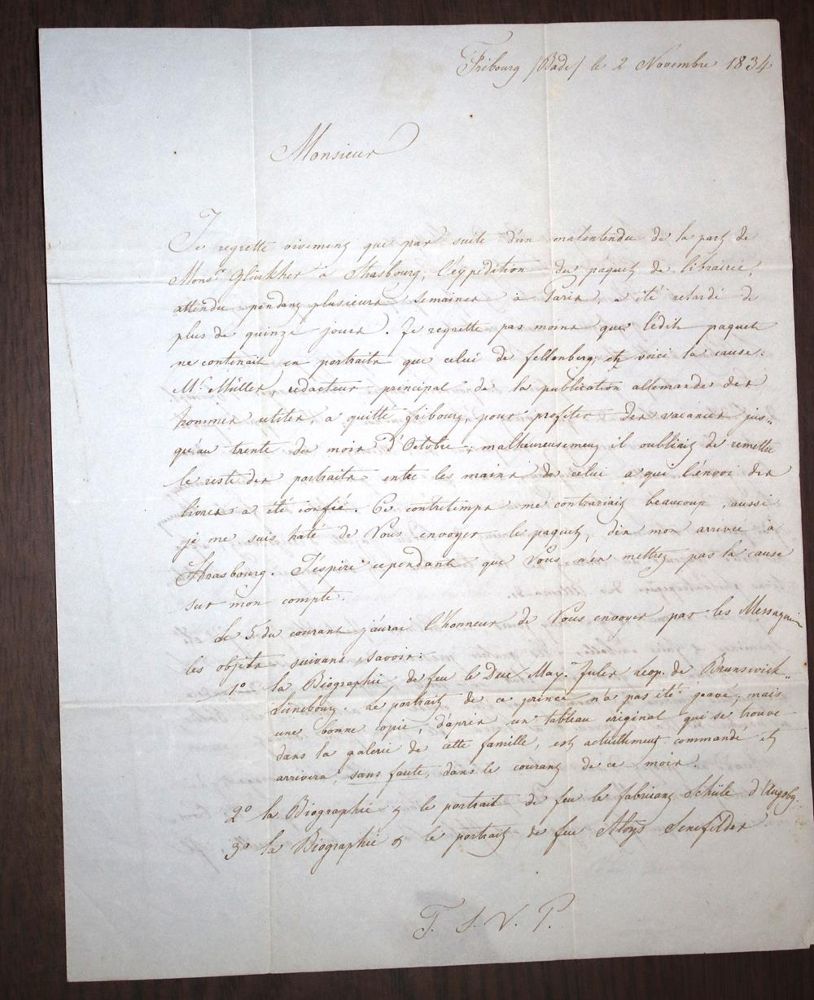 Fribourg /Bade/ le 2 Novembre 1834
Monsieur
Je regrette vivement que par suite d'un malentendu de la part de
Monsr à Strasbourg, l'expédition du paquet de librairie,
attendu pendant plusieurs semaines à Paris, a été retardé de
plus de quinze jours. Je regrette pas moins que ledit paquet
ne contenait en portraits que celui de fellenberg; et voici la cause:
Mr. Müller, rédacteur principal de la publication allemande des
hommes utiles, a quitté fribourg, pour profiter des vacances jus„
qu'au trente du mois d'Octobre; malheureusement il oubliait de remettre
le reste des portraits entre les mains de celui a qui l'envoi des
livres a été confié. Ce contretemps me contrariait beaucoup, aussi
je me suis hâté de Vous envoyer le paquet, dès mon arrivée à
Strasbourg. J'espère cependant que Vous n'en mettez pas la cause
sur mon compte.
Le 5 du courant j'aurai l'honneur de Vous envoyer par les Messageries
les objets suivans, savoir:
1o la Biographie de feu le Duc Max. Jules Leop. de Brunswick„
Lünebourg. Le portrait de ce prince n'a pas été gravé, mais
une bonne copie, d'après un tableau original qui se trouve
dans la galerie de cette famille, est actuellement commandé et
arrivera, sans faute, dans le courant de ce mois.
2o la Biographie & le portrait de feu le fabricant Schüle d'Augsbg.
3o la Biographie & le portrait de feu Aloys Senefelder.
T. S. V. P.